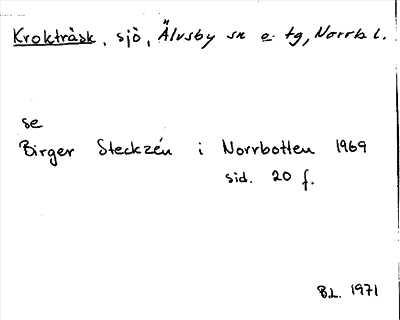 Krokträsk, sjö, Älvsby sn o. tg, Norrb l.
se
Birger Steckzén i Norrbotten 1969
sid. 20 f.
B.L. 1971